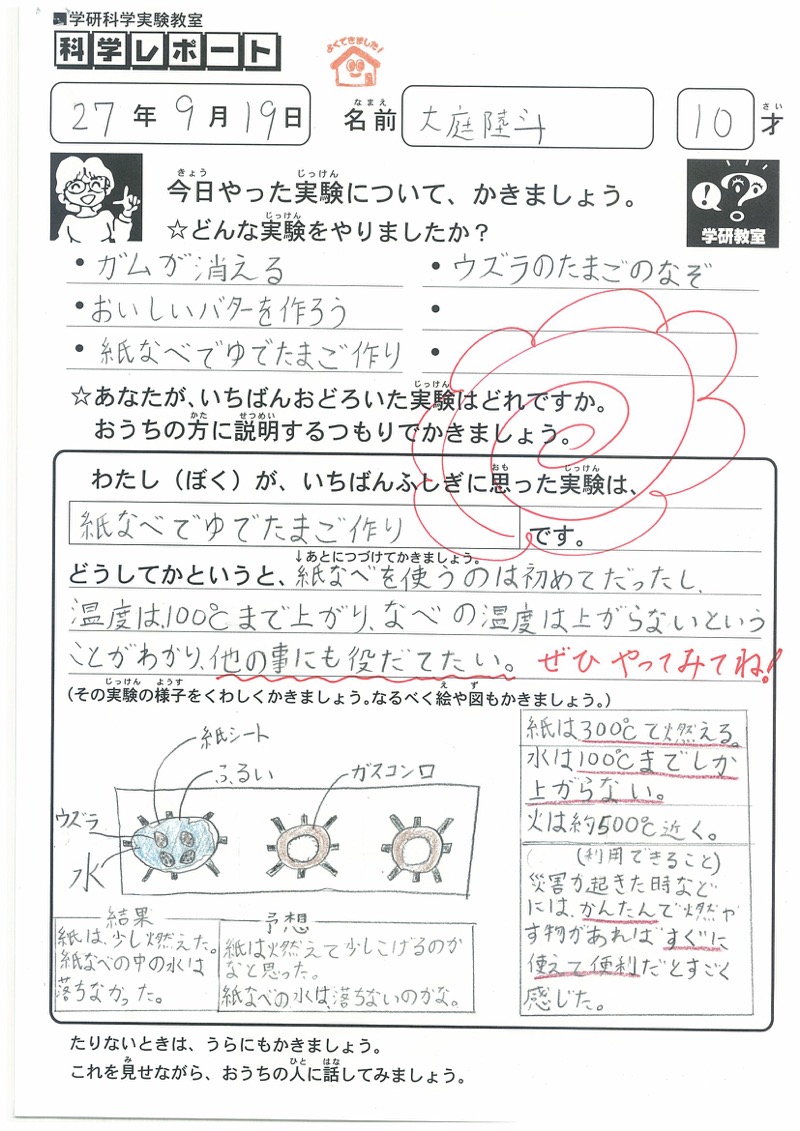 ■学研科学実験教室
科学レポート
よくできました!
27年9月19日 名前 大庭陸斗 10才
今日やった実験について、かきましょう。
☆どんな実験をやりましたか?
学研教室
• ガムが消える
• おいしいバターを作ろう
• 紙なべでゆでたまご作り
• ウズラのたまごのなぞ
•
•
☆あなたが、いちばんおどろいた実験はどれですか。
おうちの方に説明するつもりでかきましょう。
わたし(ぼく)が、いちばんふしぎに思った実験は、
紙なべでゆでたまご作り です。
↓あとにつづけてかきましょう。
どうしてかというと、紙なべを使うのは初めてだったし、
温度は、100℃まで上がり、なべの温度は上がらないという
ことがわかり、他の事にも役だてたい。 ぜひ やってみてね!
(その実験の様子をくわしくかきましょう。なるべく絵や図もかきましょう。)
紙シート
ふるい
ガスコンロ
ウズラ
水
結果
紙は、少し燃えた。
紙なべの中の水は
落ちなかった。
予想
紙は燃えて少しこげるのか
なと思った。
紙なべの水は、落ちないのかな。
紙は300℃で燃える。
水は100℃までしか
上がらない。
火は約500℃近く。
(利用できること)
災害が起きた時など
には、かんたんで燃や
す物があればすぐに
使えて便利だとすごく
感じた。
たりないときは、うらにもかきましょう。
これを見せながら、おうちの人に話してみましょう。